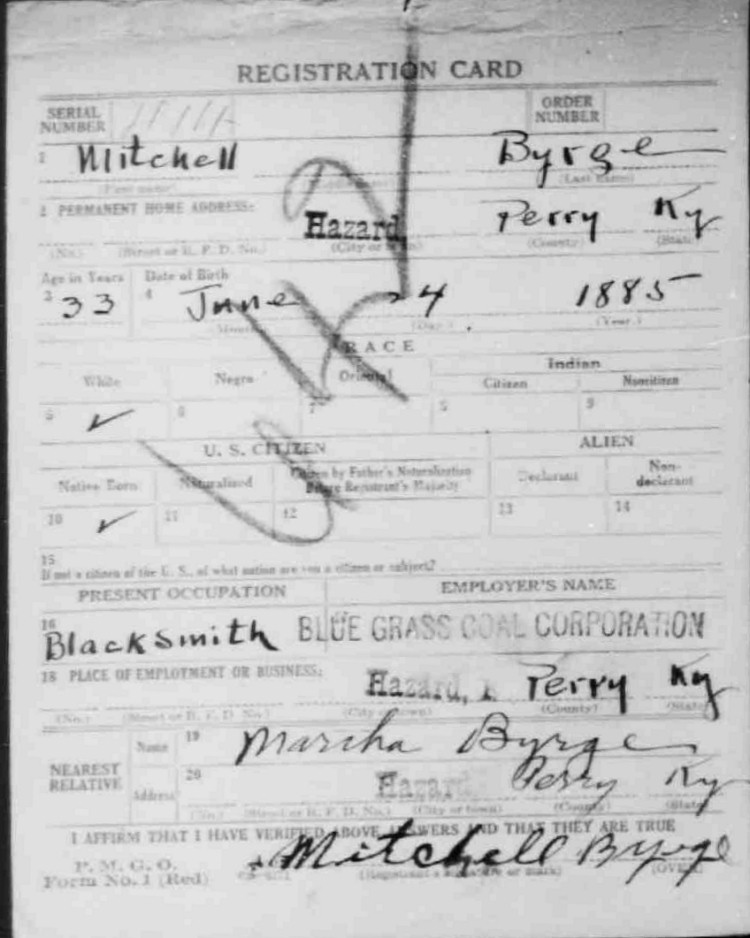 REGISTRATION CARD
SERIAL NUMBER ORDER NUMBER
1 Mitchell Byrge
(First name) (Last name)
2 PERMANENT HOME ADDRESS: Hazard, Perry Ky
(No.) (Street or R. F. D. No.) (City or town) (County) (State)
Age in Years Date of Birth
3 33 4 June 24 1885
(Month.) (Day.) (Year.)
RACE
White Negro Oriental Indian
Citizen Noncitizen
5 ✓ 6 7 8 9
U. S. CITIZEN ALIEN
Native Born Naturalized Citizen by Father's Naturalization Before Registrant's Majority Declarant Non-declarant
10 ✓ 11 12 13 14
15
If not a citizen of the U. S., of what nation are you a citizen or subject?
PRESENT OCCUPATION EMPLOYER'S NAME
16 Blacksmith BLUE GRASS COAL CORPORATION
18 PLACE OF EMPLOYMENT OR BUSINESS:
Hazard, Perry Ky
(No.) (Street or R. F. D. No.) (City or town) (County) (State)
NEAREST RELATIVE Name 19 Marcha Byrge
Address 20 Hazard Perry Ky
(No.) (Street or R. F. D. No.) (City or town) (County) (State)
I AFFIRM THAT I HAVE VERIFIED ABOVE ANSWERS AND THAT THEY ARE TRUE
P. M. G. O.
Form No. 1 (Red) Mitchell Byrge
(Registrant's signature or mark) (OVER)